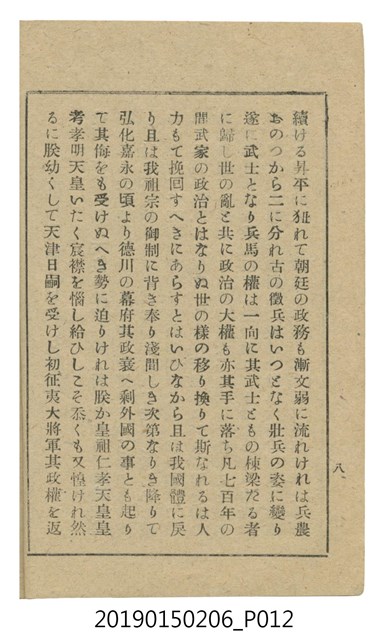 續ける昇平に狃れて朝廷の政務も漸文弱に流れけれは兵農
おのつから二に分れ古の徴兵はいつとなく壯兵の姿に變り
遂に武士となり兵馬の權は一向に其武士ともの棟梁たる者
に歸し世の亂と共に政治の大權も亦其手に落ち凡七百年の
間武家の政治とはなりぬ世の様の移り換りて斯なれるは人
力もて挽回すへきにあらすとはいひなから且は我國體に戻
り且は我祖宗の御制に背き奉り淺間しき次第なりき降りて
弘化嘉永の頃より德川の幕府其政衰へ剩外國の事とも起り
て其侮をも受けぬへき勢に迫りけれは朕か皇祖仁孝天皇皇
考孝明天皇いたく宸襟を惱し給ひしこそ忝くも又惶けれ然
るに朕幼くして天津日嗣を受けし初征夷大將軍其政權を返
八
20190150206_P012